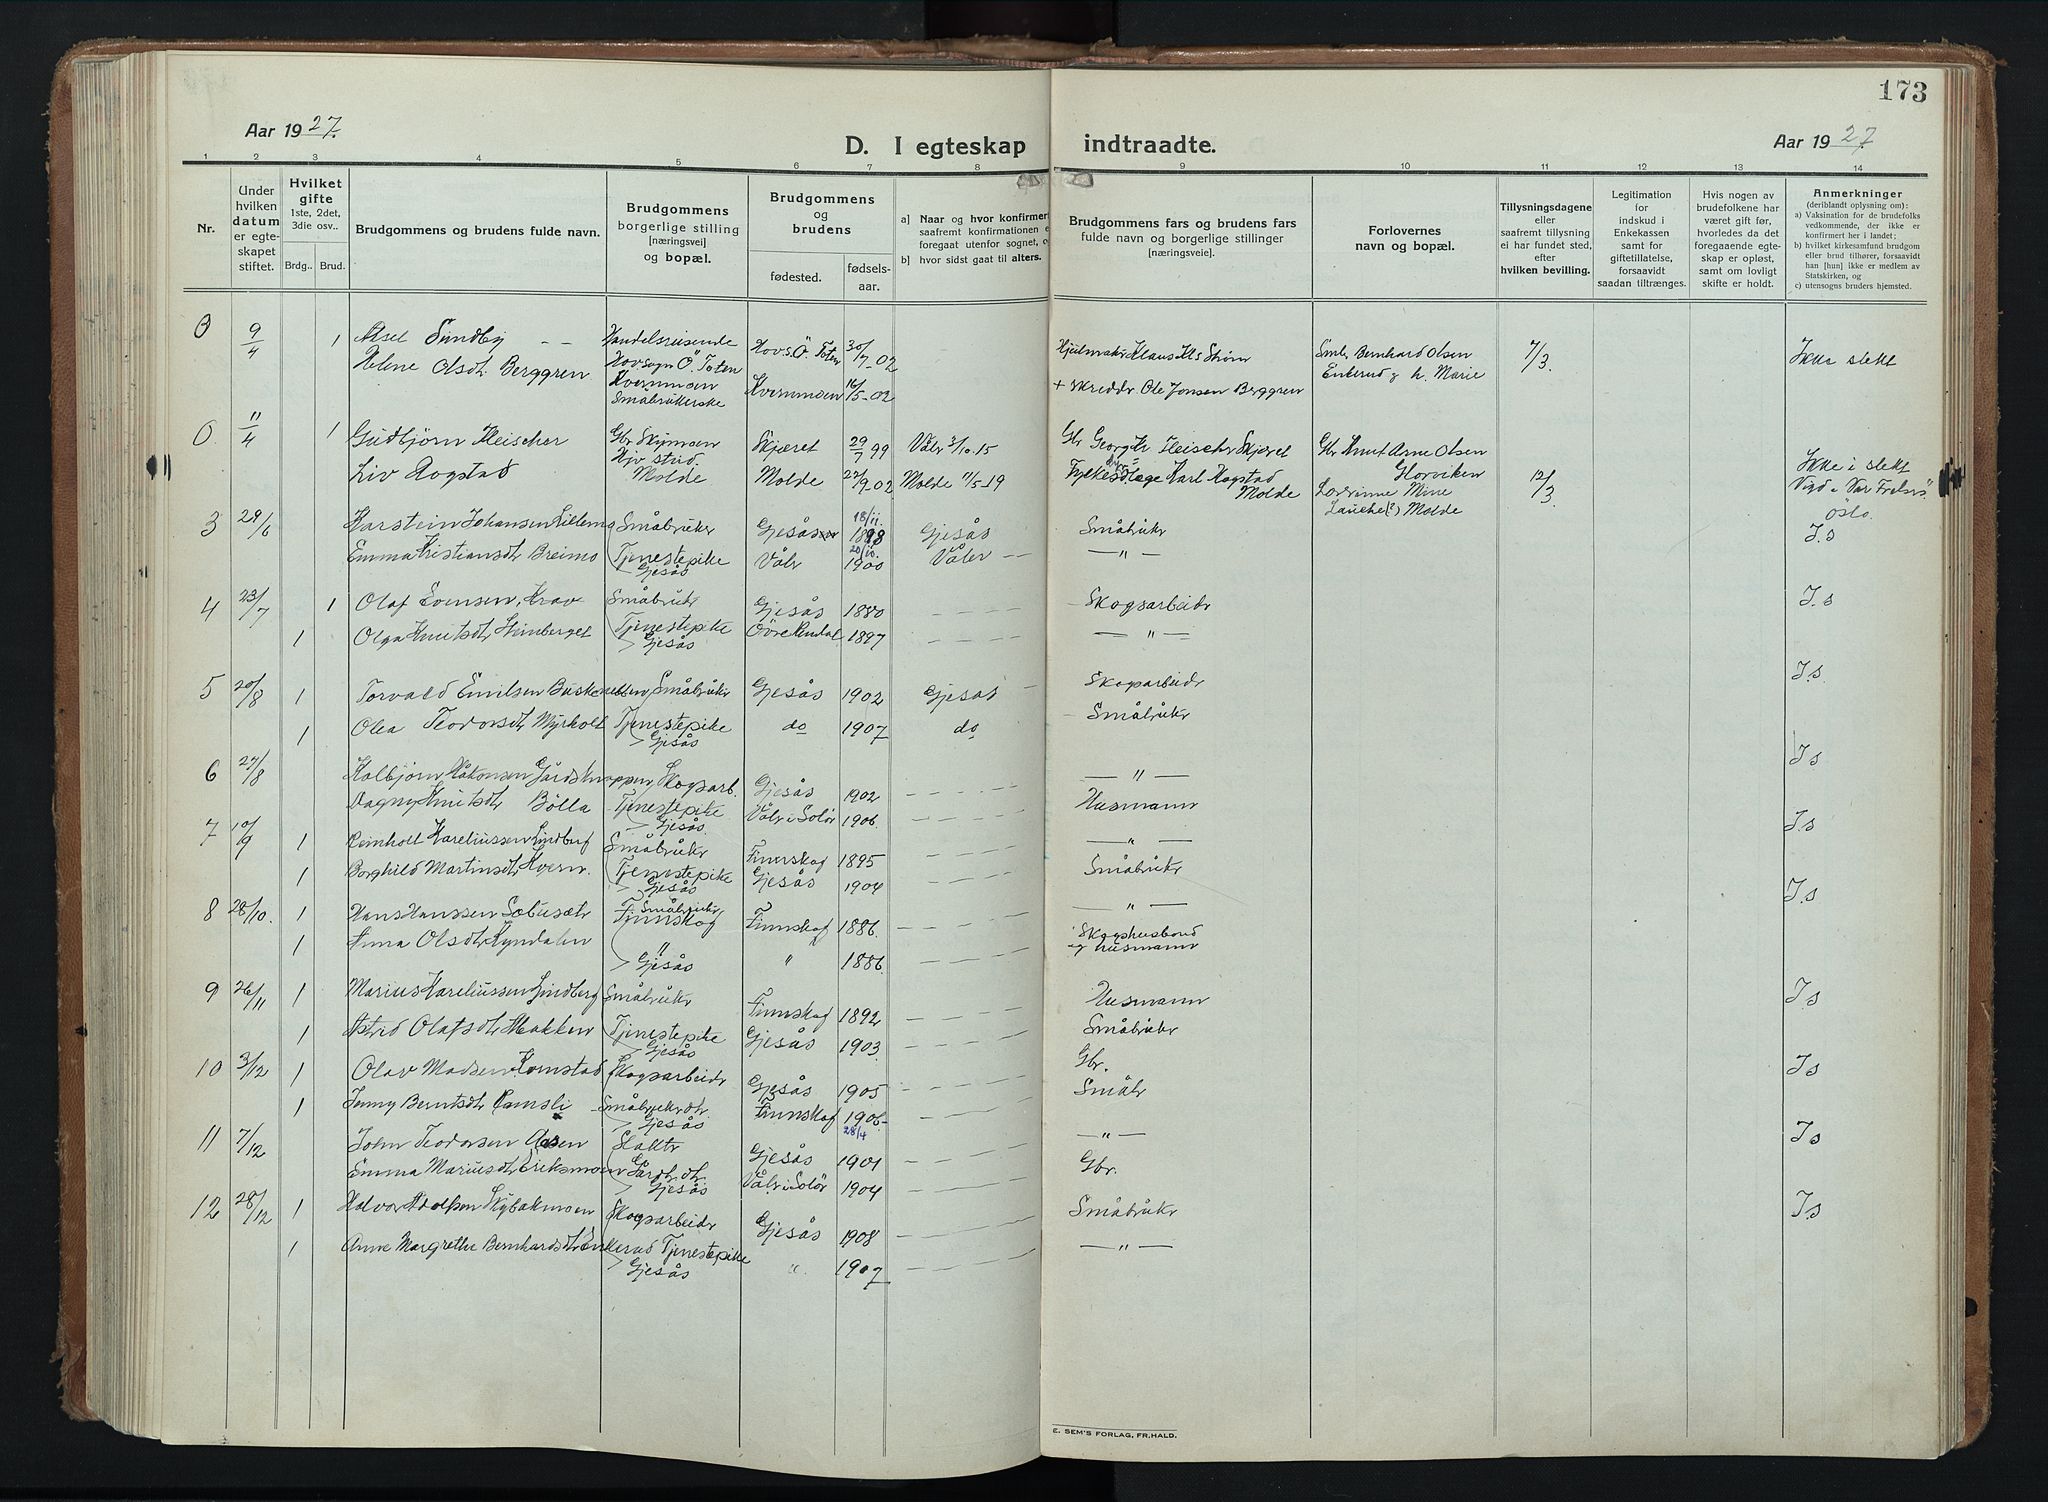 173
Aar 1927.
Aar 1927.
D. I egteskap indtraadte.
1 2 3 4 5 6 7 8 9 10 11 12 13 14
Nr.
Under hvilken datum er egteskapet stiftet.
Hvilket gifte 1ste, 2det, 3die osv..
Brdg.. Brud.
Brudgommens og brudens fulde navn.
Brudgommens borgerlige stilling [næringsvei] og bopæl.
Brudgommens og brudens
fødested. fødsels-aar.
a] Naar og hvor konfirmert
saafremt konfirmationen e
foregaat utenfor sognet, o
b] hvor sidst gaat til alters.
Brudgommens fars og brudens fars
fulde navn og borgerlige stillinger
[næringsveie].
Forlovernes
navn og bopæl.
Tillysningsdagene
eller
saafremt tillysning
ei har fundet sted,
efter
hvilken bevilling.
Legitimation
for
indskud i
Enkekassen
samt for
giftetillatelse,
forsaavidt
saadan tiltrænges.
Hvis nogen av
brudefolkene har
været gift før,
hvorledes da det
foregaaende egte-
skap er opløst,
samt om lovligt
skifte er holdt.
Anmerkninger
(deriblandt oplysning om):
a) Vaksination for de brudefolks
vedkommende, der ikke er
konfirmert her i landet;
b) hvilket kirkesamfund brudgom
eller brud tilhører, forsaavidt
han [hun] ikke er medlem av
Statskirken, og
c) utensogns bruders hjemsted.
0 9/4 1 Aksel Sundby Handelsreisende Hovs. Ö. Toten 30/7-02 7/3. Ikke slekt
Helene Olsdt Berggren Hovsogn Ö Toten
Kvernmoen Småbrukerske Kvernmoen 16/5-02 + Skreddr. Ole Jonsen Berggren
Smbr Bernhard Olsen
Enkerud g h. Marie
0. 11/4 1 Gudbjörn Fleischer Gbr Skjæret 29/7 99 Vålr 3/10.15 Gbr Knut Arne Olsen
Liv Rogstad Molde Molde 27/9 02 Molde 11/5-19 Fylkeslæge Karl Rogstad Molde 12/3
Ikke i slekt
Vigd i Vår Frelsers
Oslo.
3 29/6 Karstein Johansen Lillemo Småbruker Gjesåsen 18/11. 1898 Gjesås Småbrukr I.s
Emma Kristiansdt Breimo Tjenestepike Gjesås Vålr 20/10. 1900 Våler — " —
4 23/7 1 Olaf Evensen Småbrukr Gjesås 1880 Skogsarbeidr I.s
1 Olga Knutsdt Tjenestepike Gjesås Övre Rendal 1897 — " —
5 20/8 1 Torvald Emilsen Småbrukr Gjesås 1902 Gjesås Skogsarbeidr I.s.
1 Olea Teodorsdt Myrholt Tjenestepike Gjesås do 1907 do Småbrukr
6 27/8 Kolbjörn Håkonsen Skogsarb. Gjesås 1902 — " — I s
Dagny Knutsdt Bölla Tjenestepike Gjesås. Vålr i Solör 1906. Husmann
7 10/9 1 Reinholt Kareliussen Lindberg Småbrukr Finnskog 1895 — " — I.s
1 Borghild Martinsdt Kvern. Tjenestepike Gjesås Gjesås 1904 Småbrukr
8 28/10. 1 Hans Hanssen Småbrukr Finnskog Finnskog 1886. — " — I.s
1 Anna Olsdt Kyndalen " Gjesås " 1886. Skogshusbond og husmann
9 26/11 1 Marius Kareliussen Lindberg Småbrukr Finnskog 1892 Husmann I s
1 Astrid Olafsdt Bakken Tjenestepike Gjesås Gjesås 1903. Småbrukr
10 3/12 1 Olav Madsen Skogsarbeidr Gjesås 1905 Gbr. I s
1 Jenny Berntsdt Ramsli Småbrukrdtr. Gjesås Finnskog 1906 Småbr
11 7/12 John Teodorsen Aasen Slaktr Gjesås 28/4 1901 — " — I s
Emma Mariusdt Eriksmoen Gårdbr.dtr. Gjesås Vålr i Solör 1904 Gbr.
12 28/12 1 Halvor Adolfsen Skybakmoen Skogsarbeidr Gjesås 1908 Småbrukr I.s
1 Anne Margrethe Bernhardsdt Enkerud Tjenestepike Gjesås " 1907 — " —
E. SEM'S FORLAG, FR.HALD.